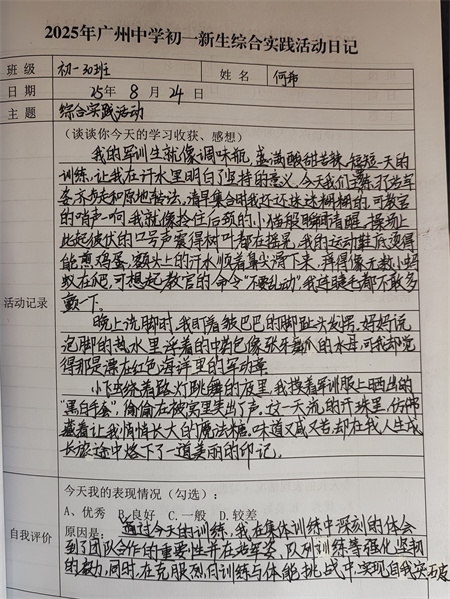 2025年广州中学初一新生综合实践活动日记
班级 初一30班 姓名 何希
日期 25年8月24日
主题 综合实践活动
（谈谈你今天的学习收获、感想）
我的军训生就像调味瓶，盛满酸甜苦辣，短短一天的
训练，让我在汗水里明白了坚持的意义。今天我们主练，军
姿齐步走和原地转法，清早集合时我还迷迷糊糊的，可教官
的哨声一响，我就像拴住后颈的小猫般瞬间清醒，操场上
此起彼伏的口号声震得树叶都在摇晃，我的运动鞋底烫得
能煎鸡蛋，额头上的汗水顺着鼻尖滑下来，痒得像无数小蚂
蚁在爬，可想起教官的命令“不要乱动”我连睫毛都不敢多
颤一下。
晚上洗脚时，我盯着皱巴巴的脚趾头发愣，好妈说
泡脚的热水里浮着的中药包像张牙舞爪的水母，可我却觉
得那是漂在红色海洋里的军功章
小飞虫绕着路灯跳舞的夜里，我摸着军训服上晒出的
“黑白手套”，偷偷在被窝里笑出了声，这一天流的汗珠里，仿佛
藏着让我悄悄长大的魔法糖。味道又咸又苦，却在我人生成
长旅途中烙下了一道美丽的印记。
活动记录
今天我的表现情况（勾选）：
A、优秀 B、良好 C.一般 D.较差
自我评价
原因是：通过今天的训练，我在集体训练中深刻的体会
到了团队合作的重要性并在站军姿，队列训练等强化坚韧
的毅力，同时，在克服烈日训练与体能挑战中，实现自我突破